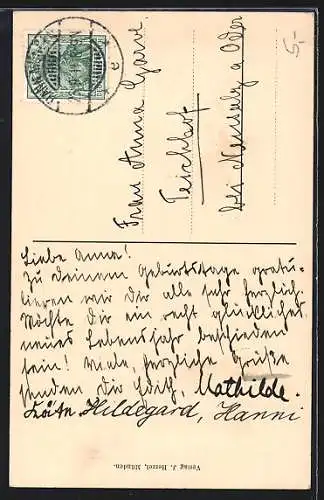 5.-
Frau Anna Garve
Teichhof
bei Neusalz a Oder
Liebe Anna!
Zu deinem Geburtstage gratu-
lieren wir dir alle sehr herzlich.
Möchte Dir ein recht glückliches
neues Lebensjahr beschieden
sein! Viele, herzliche Grüße
senden dir Edith, Mathilde.
Käte, Hildegard, Hanni
Verlag J. Hessel, München